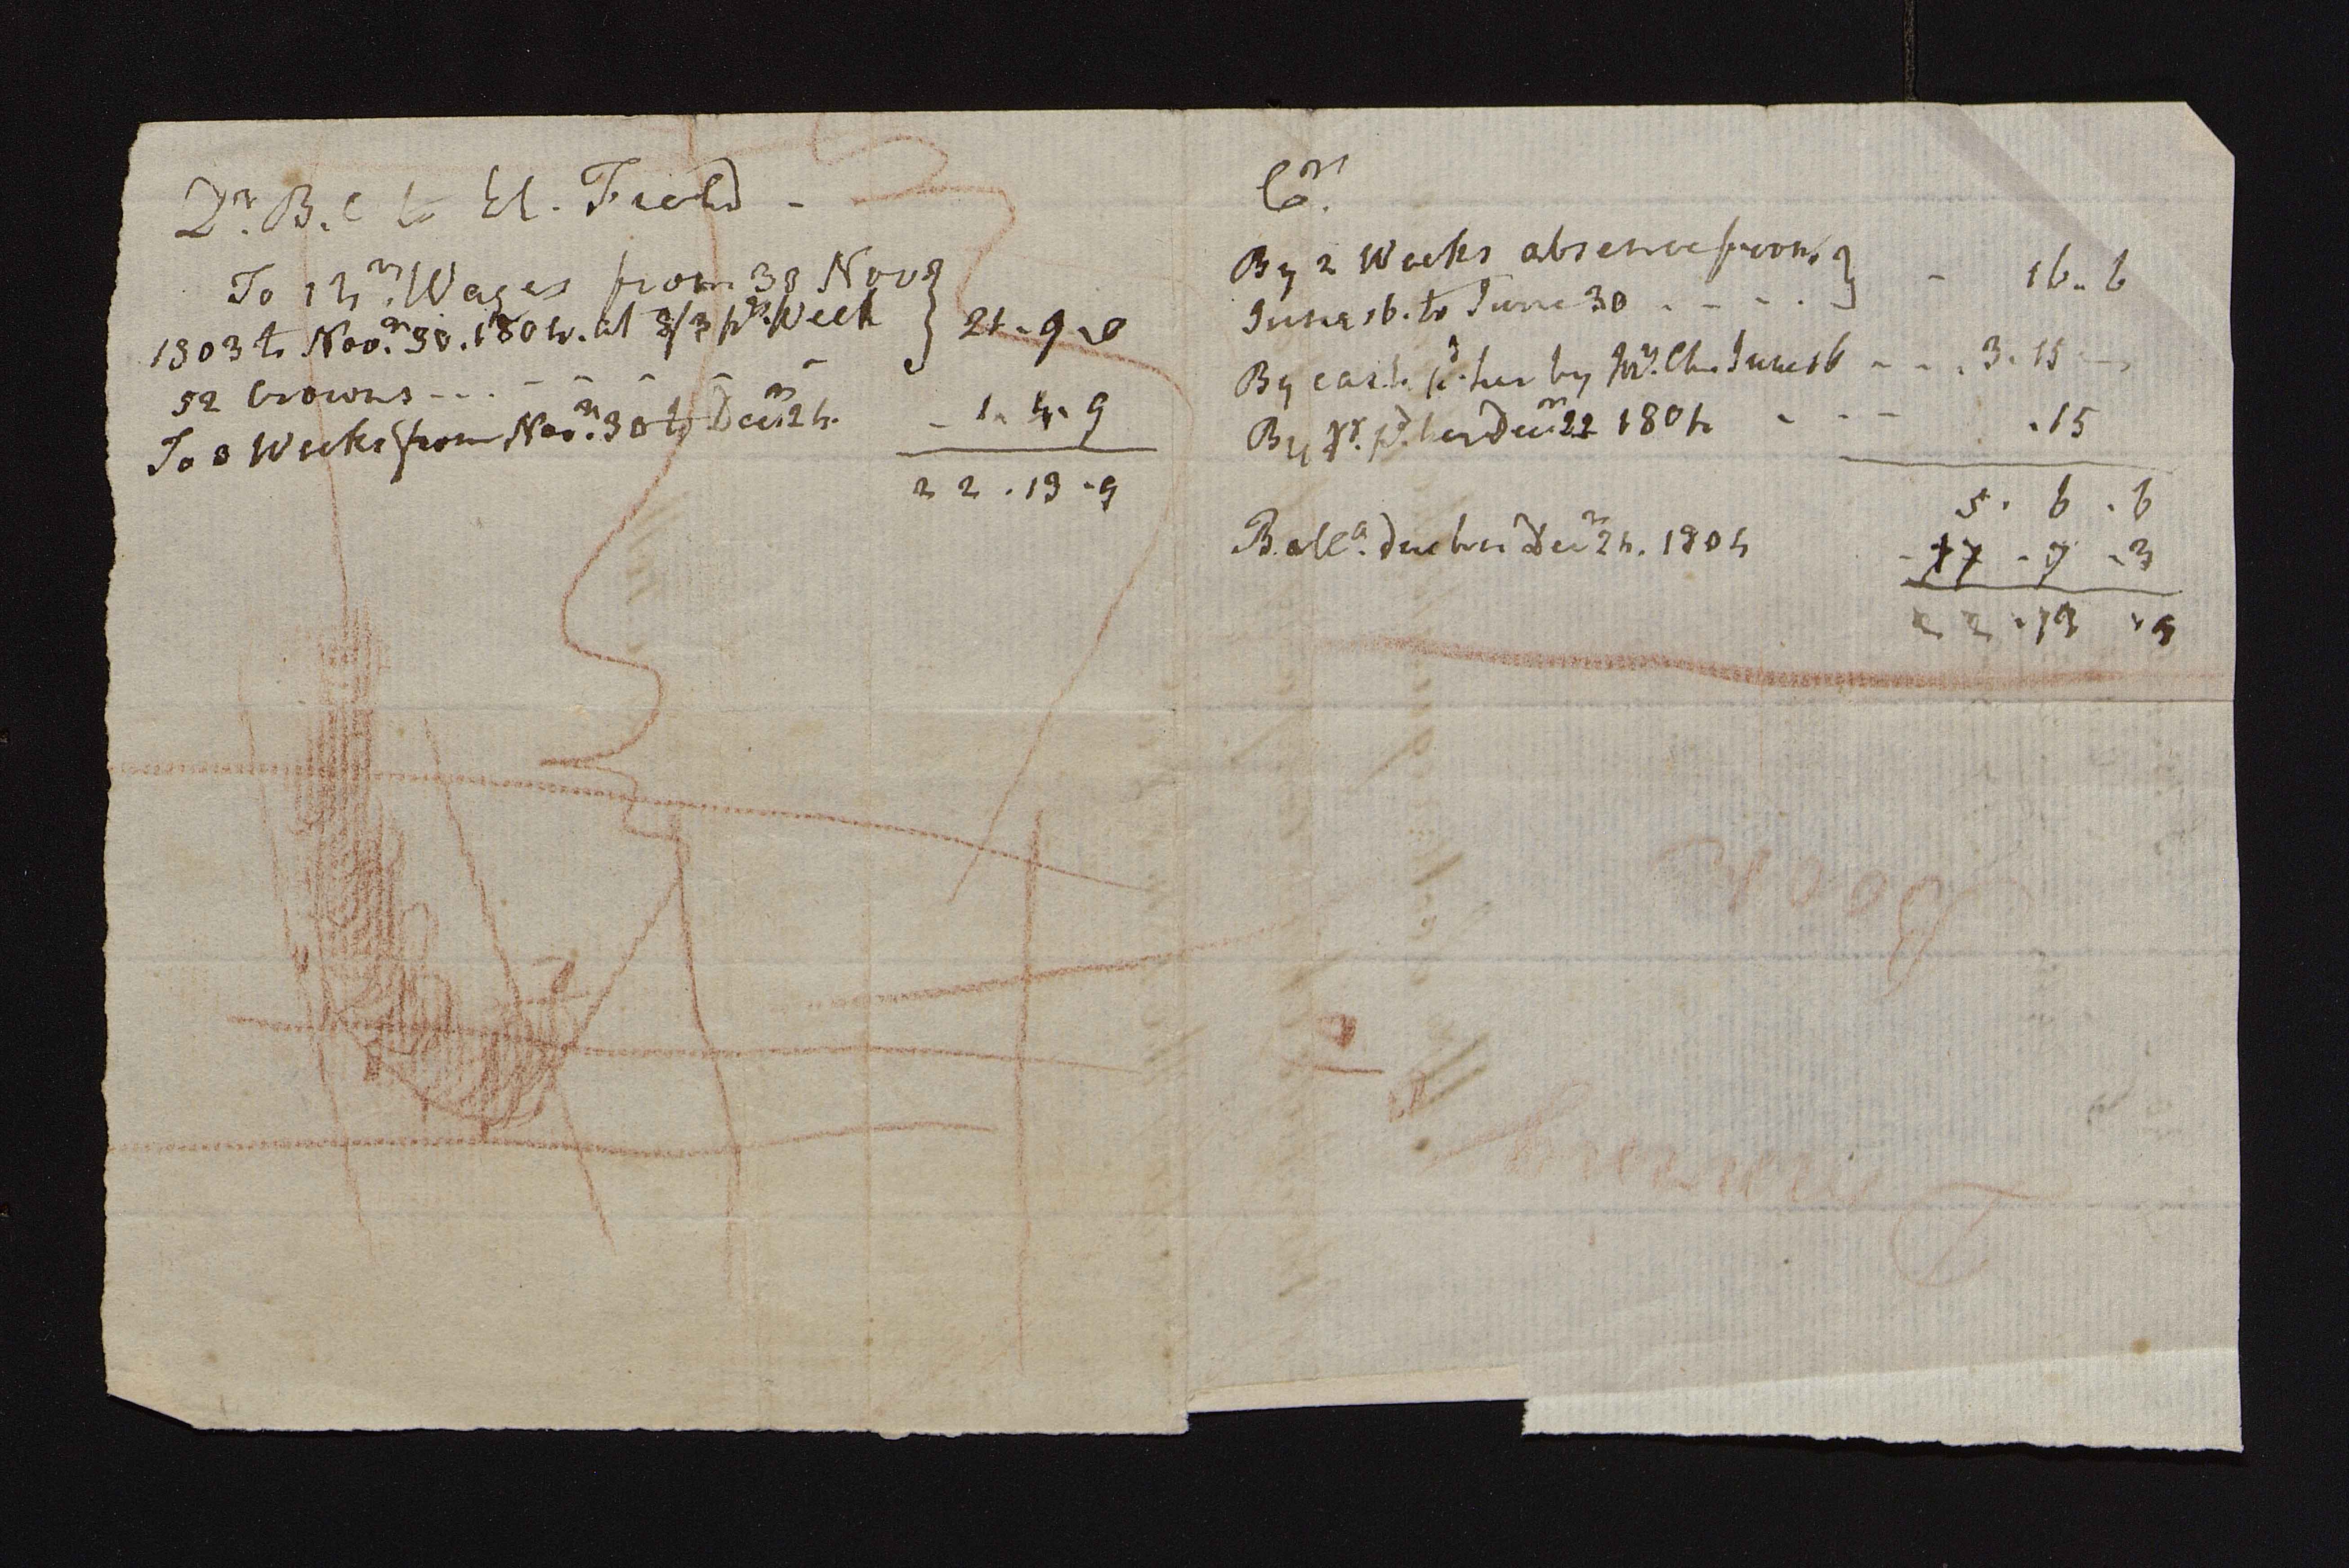 Dr. B. C to El. Field -
To 1 Yr. Wages from 30 Novr
1803 to Novr. 30. 1804. at 8/3 pr. Week } 21 - 9 - 0
52 Crowns - - - - - - - -
To 3 Weeks from Novr. 30 to Decr 24. - 1. 4. 9
22 . 13 . 9
Cr.
By 2 Weeks absence from }
June 16. to June 30 - - - . - 16 . 6
By cash pd. her by June 16 - - . 3 . 15 -
By Do. pd. her Decr 22 1804 - - - . 15
5 . 6 . 6
Balla. due her Decr 24. 1804 - 17 - 7 - 3
22 . 13 . 9
Book